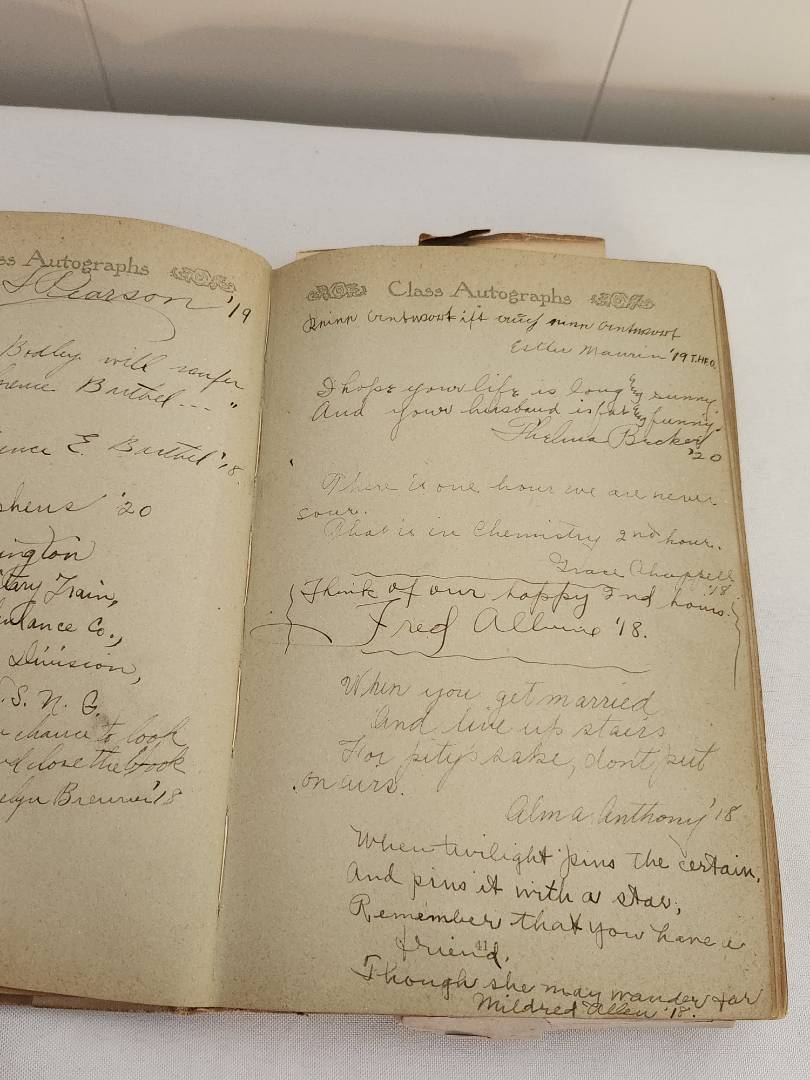 ss Autographs
Pearson '19
Bodley will
Barthel --- "
E. Barthel '18.
'20
ington
Train,
Co.,
Division,
S. N. G.
chance to look
close the book
'18
Class Autographs
Esther '19 T.H.C.
I hope your life is long & sunny.
And your husband is fat & funny.
Thelma
'20
There is one hour we are never
sour.
That is in Chemistry 2nd hour.
Grace Chappell
'18
Think of our happy 2nd hours.
Fred '18.
When you get married
And live up stairs
For pity's sake, dont put
on airs.
Alma Anthony '18
When twilight pins the certain,
And pins it with a star,
Remember that you have a
friend.
41
Though she may wander far
Mildred Allen '18.